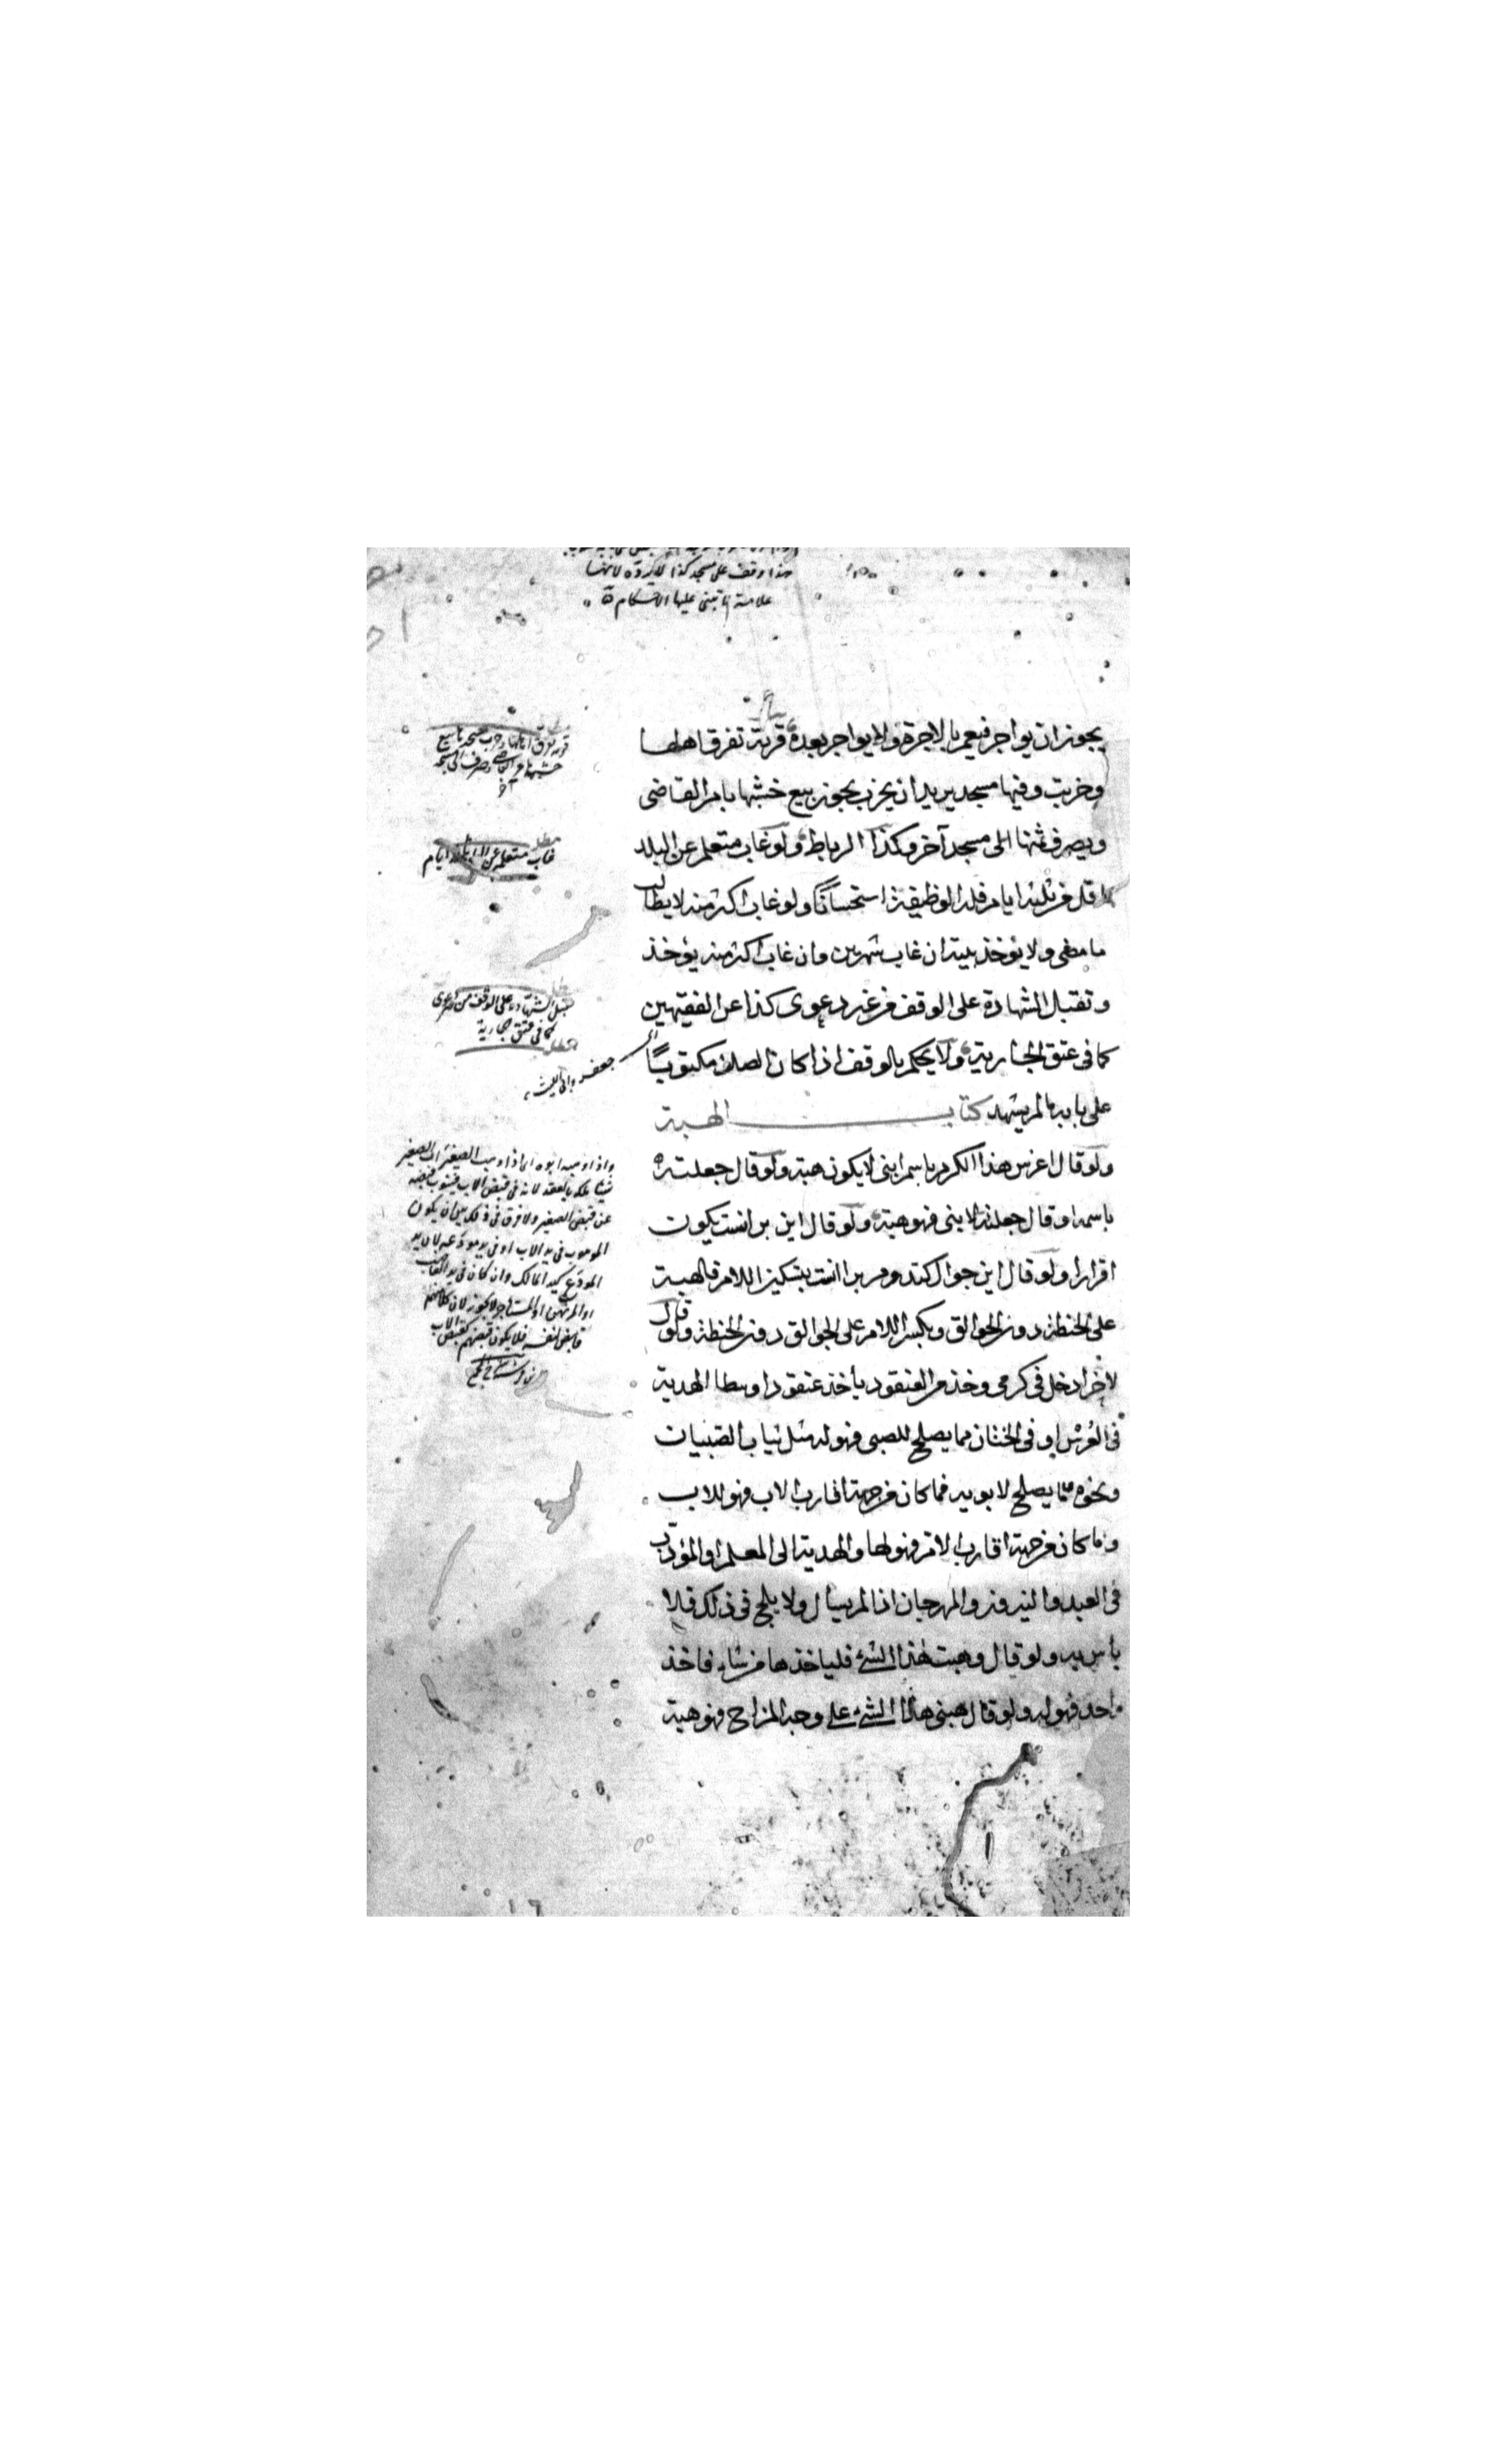 هذا وقف على مسجد كذا لا يرده لانها
علامة لا تبنى عليها الاحكام
يجوز ان يواجر فيعمر بالاجرة ولا يواجر بعده قرية تفرق اهلها
وخربت وفيها مسجد يريد ان يخرب يجوز بيع خشبها بامر القاضى
ويصرف ثمنها الى مسجد آخر وكذا الرباط ولو غاب متعلم عن البلد
اقل من ثلثة ايام فله الوظيفة استحسانًا ولو غاب اكثر منه لا يطالب
ما مضى ولا يؤخذ بيته ان غاب شهرين وان غاب اكثر منه يؤخذ
وتقبل الشهادة على الوقف من غير دعوى كذا عن الفقيهين
كما فى عتق الجارية ولا يحكم بالوقف اذا كان الصك مكتوبًا
على بابه ما لم يشهد كتاب الهبة
ولو قال اغرس هذا الكرم باسم ابنى لا يكون هبة ولو قال جعلته
باسمه او قال جعلته لابنى فهو هبة ولو قال اين براتست يكون
اقرارا ولو قال اين جوال كندم براتست بتسكين اللام فالهبة
على الحنطة دون الجوالق وبكسر اللام على الجوالق دون الحنطة ولو قال
لآخر ادخل فى كرمى وخذ من العنقود يأخذ عنقودا وسطا الهدية
فى العرس او فى الختان مما يصلح للصبى فهو له مثل ثياب الصبيان
ونحوه مما يصلح لابويه فما كان من جهة اقارب الاب فهو للاب
وما كان من جهة اقارب الام فهو لها والهدية الى المعلم او المؤدب
فى العيد والنيروز والمهرجان اذا لم يسأل ولا يلح فى ذلك فلا
بأس به ولو قال وهبت هذا الشئ فلياخذها من شاء فاخذ
واحد فهو له ولو قال هبنى هذا الشئ على وجه المزاح فهو هبة
خشبها بامر القاضى وصرف الى مسجد
مطلب
غاب متعلم عن البلد ايام
تقبل الشهادة على الوقف من غير دعوى
كما فى عتق الجارية
مطلب
ابى جعفر وابى الليث
واذا وهبه ابوه اى اذا وهب الصغير اب الصغير
شيئا ملكه بالعقد لانه فى قبض الاب فينوب قبضه
عن قبض الصغير ولا فرق فى ذلك بين ان يكون
الموهوب فى يد الاب او فى يد مودعه لان يد
المودع كيد المالك وان كان فى يد الغاصب
او المرتهن او المستأجر لا يجوز لان كلا منهم
قابض لنفسه فلا يكون قبضهم كقبض الاب